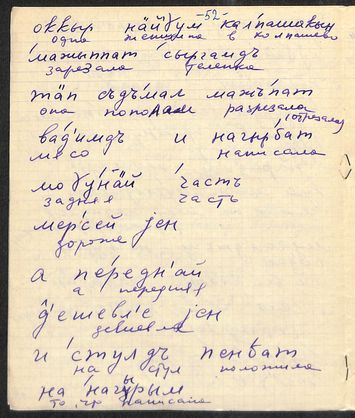 -52-
оккыр нӓйӷум калпашаӄын
одна женщина в колпашево
мажыппат сыргандъ
зарезала теленка
тӓп съдъмал мажъпат
она пополам разрезала
(отрезала)
вадимдъ и нагырбат
мясо написала
моӷунӓй часть
задняя часть
мерсей jен
дороже
а передняй
а передняя
дешевле jен
дешевле
и стулдъ пенбат
на стул положила
на нагырым
то, что написала